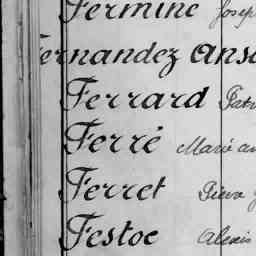 Fermine Josep
Fernandez Ans
Ferrard Patr
Ferré Marie an
Ferret Pierre
Festoc Alexis